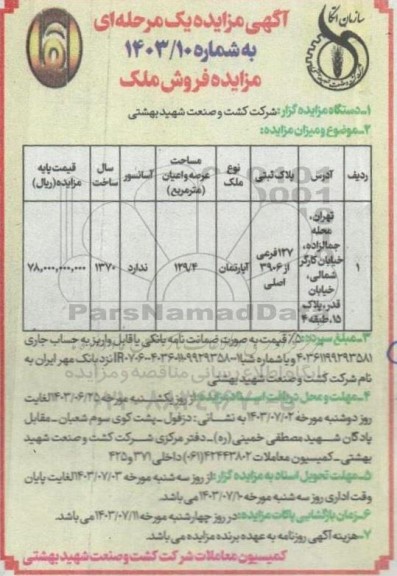 سازمان اتکا
آگهی مزایده یک مرحله ای
به شماره ۱۴۰۳/۱۰
مزایده فروش ملک
۱- دستگاه مزایده گزار: شرکت کشت و صنعت شهید بهشتی
۲- موضوع و میزان مزایده:
ردیف آدرس پلاک ثبتی نوع ملک مساحت عرصه و اعیان (مترمربع) آسانسور سال ساخت قیمت پایه مزایده (ریال)
۱ تهران، محله جمالزاده، خیابان کارگر شمالی، خیابان قدر، پلاک ۱۵، طبقه ۴ ۱۲۷ فرعی از ۳۹۰۶ اصلی آپارتمان ۱۲۹/۴ ندارد ۱۳۷۰ ۷۸,۰۰۰,۰۰۰,۰۰۰
ParsNamadData
۳- مبلغ سپرده: ۵٪ قیمت به صورت ضمانت نامه بانکی یا قابل واریز به حساب جاری
نزد بانک مهر ایران به
نام شرکت کشت و صنعت شهید بهشتی
پایگاه اطلاع رسانی مناقصه و مزایده
۴- مهلت و محل دریافت اسناد مزایده: از روز یکشنبه مورخه ۱۴۰۳/۰۶/۲۵ لغایت
روز دوشنبه مورخه ۱۴۰۳/۰۷/۰۲ به نشانی: دزفول - پشت کوی سوم شعبان - مقابل
پادگان شهید مصطفی خمینی (ره) - دفتر مرکزی شرکت کشت و صنعت شهید
بهشتی - کمیسیون معاملات ۴۲۴۴۳۸۰۲ (۰۶۱) داخلی ۳۷۱ و ۴۲۵
۵- مهلت تحویل اسناد به مزایده گزار: از روز سه شنبه مورخه ۱۴۰۳/۰۷/۰۳ لغایت پایان
وقت اداری روز سه شنبه مورخه ۱۴۰۳/۰۷/۱۰ می باشد.
۶- زمان بازگشایی پاکات مزایده: در روز چهارشنبه مورخه ۱۴۰۳/۰۷/۱۱ می باشد.
۷- هزینه آگهی روزنامه به عهده برنده مزایده می باشد.
کمیسیون معاملات شرکت کشت و صنعت شهید بهشتی